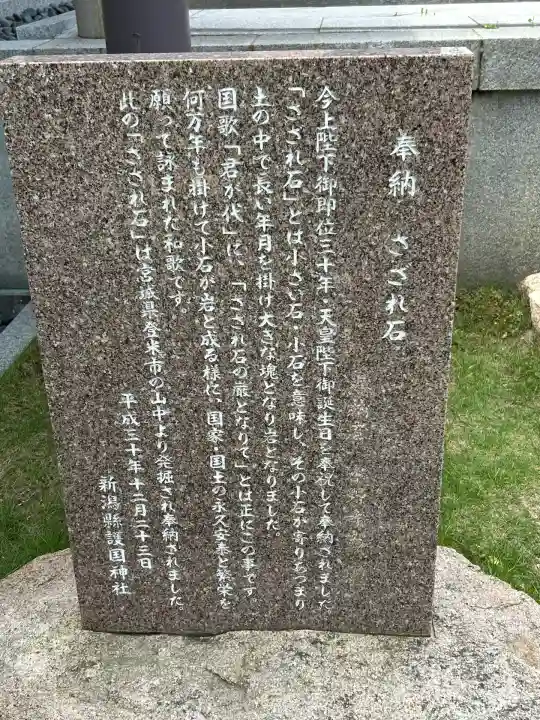 奉納　さざれ石
今上陛下御即位三十年・天皇陛下御誕生日を奉祝して奉納されました
「さざれ石」とは小さい石・小石を意味し、その小石が寄りあつまり
土の中で長い年月を掛け大きな塊となり岩となりました。
国歌「君が代」に、「さざれ石の巌となりて」とは正にこの事です。
何万年も掛けて小石が岩と成る様に、国家・国土の永久安泰と繁栄を
願って詠まれた和歌です。
此の「さざれ石」は宮城県登米市の山中より発掘され奉納されました。
平成三十年十二月二十三日
新潟縣護国神社